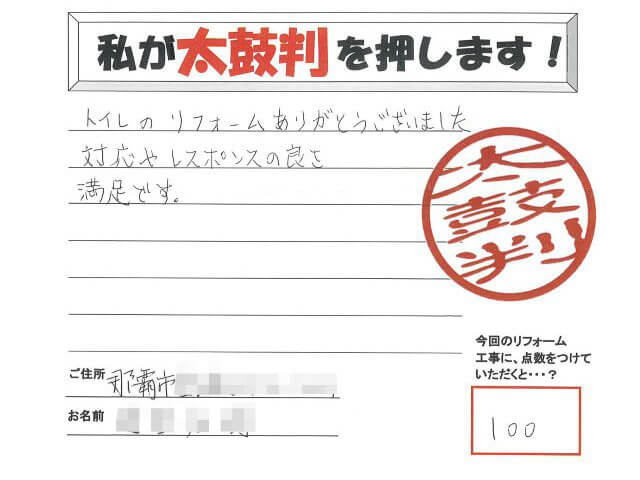 私が太鼓判を押します！
トイレのリフォームありがとうございました
対応やレスポンスの良さ
満足です。
太鼓判
今回のリフォーム
工事に、点数をつけて
いただくと・・・？
ご住所 那覇市
お名前
100